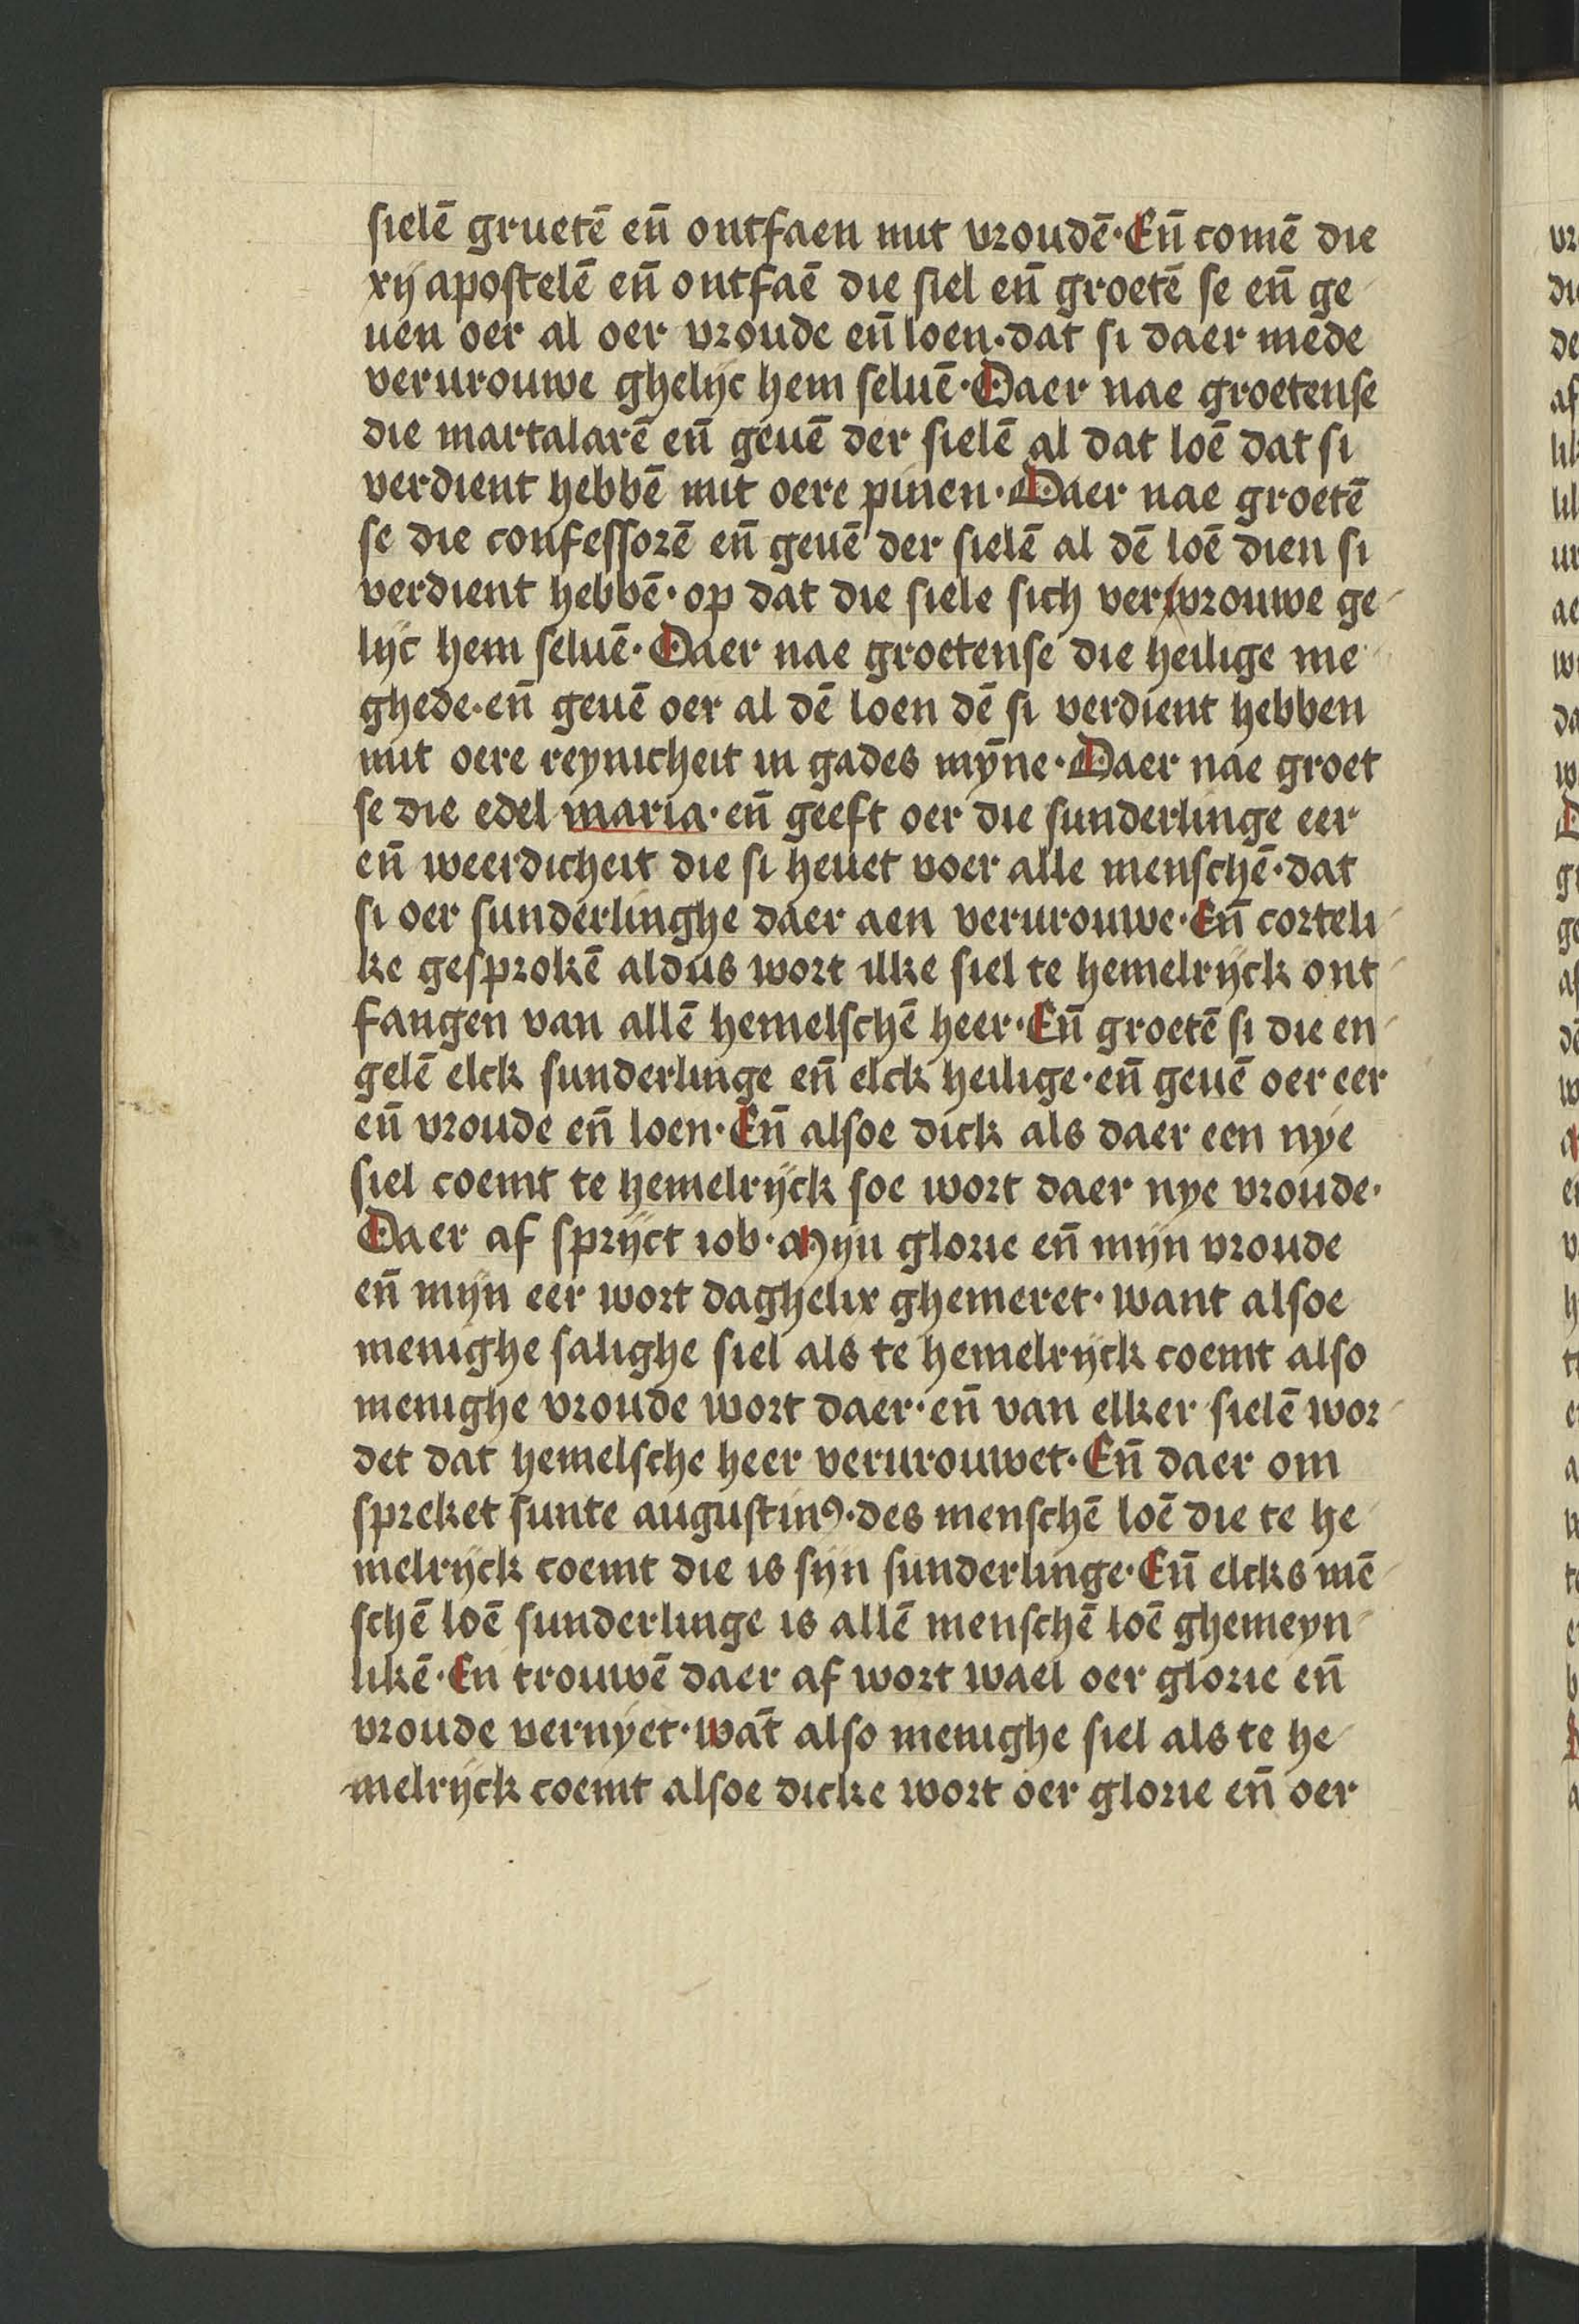 sielē gruetē en̄ ontfaen mit vroudē·En̄ comē die
xij apostelē en̄ ontfaē die siel en̄ groetē se en̄ ge
uen oer al oer vroude en̄ loen·dat si daer mede
verurouwe ghelijc hem seluē·Daer nae groetense
die martalarē en̄ geuē der sielē al dat loē dat si
verdient hebbē mit oere pinen·Daer nae groetē
se die confessorē en̄ geuē der sielē al dē loē dien si
verdient hebbē·op dat die siele sich ver vrouwe ge
lijc hem seluē·Daer nae groetense die heilige me
ghede·en̄ geuē oer al dē loen dē si verdient hebben
mit oere reynicheit in gades mȳne·Daer nae groet
se die edel maria·en̄ geeft oer die sunderlinge eer
en̄ weerdicheit die si heuet voer alle menschē·dat
si oer sunderlinghe daer aen verurouwe·En̄ corteli
ke gesprokē aldus wort ilke siel te hemelrijck ont
fangen van allē hemelschē heer·En̄ groetē si die en
gelē elck sunderlinge en̄ elck heilige·en̄ geuē oer eer
en̄ vroude en̄ loen·En̄ alsoe dick als daer een nye
siel coemt te hemelrijck soe wort daer nye vroude·
Daer af sprijct iob·Mijn glorie en̄ mijn vroude
en̄ mijn eer wort daghelix ghemeret·want alsoe
menighe salighe siel als te hemelrijck coemt also
menighe vroude wort daer·en̄ van elker sielē wor
det dat hemelsche heer verurouwet·En̄ daer om
spreket sunte augustinꝯ·des menschē loē die te he
melrijck coemt die is sijn sunderlinge·En̄ elcks mē
schē loē sunderlinge is allē menschē loē ghemeyn
likē·En trouwē daer af wort wael oer glorie en̄
vroude vernyet·wāt also menighe siel als te he
melrijck coemt alsoe dicke wort oer glorie en̄ oer